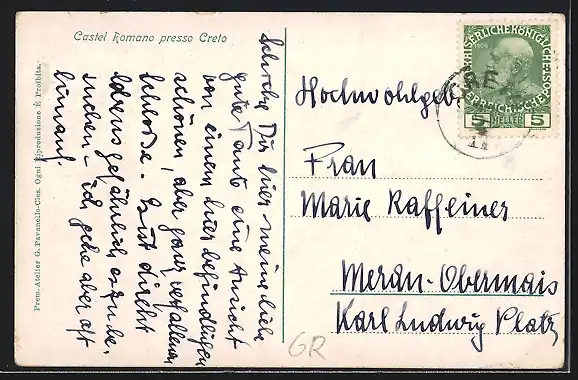 Castel Romano presso Creto
Prem. Atelier G. Pavanello-Cles. Ogni Riproduzione È Proibita.
Schicke Dir hier meine liebe
gute Tante eine Ansicht
von einem hier befindlichen
schönen, aber ganz verfallenen
Schlosse. Es ist nicht
ganz gefährlich es zu be-
suchen – ich gehe aber oft
hinauf.
KAISERLICHE KÖNIGLICHE
1908
ÖSTERREICHISCHE
5 HELLER 5
Hochwohlgeb.
Frau
Marie Raffeiner
Meran-Obermais
Karl Ludwig Platz
GR